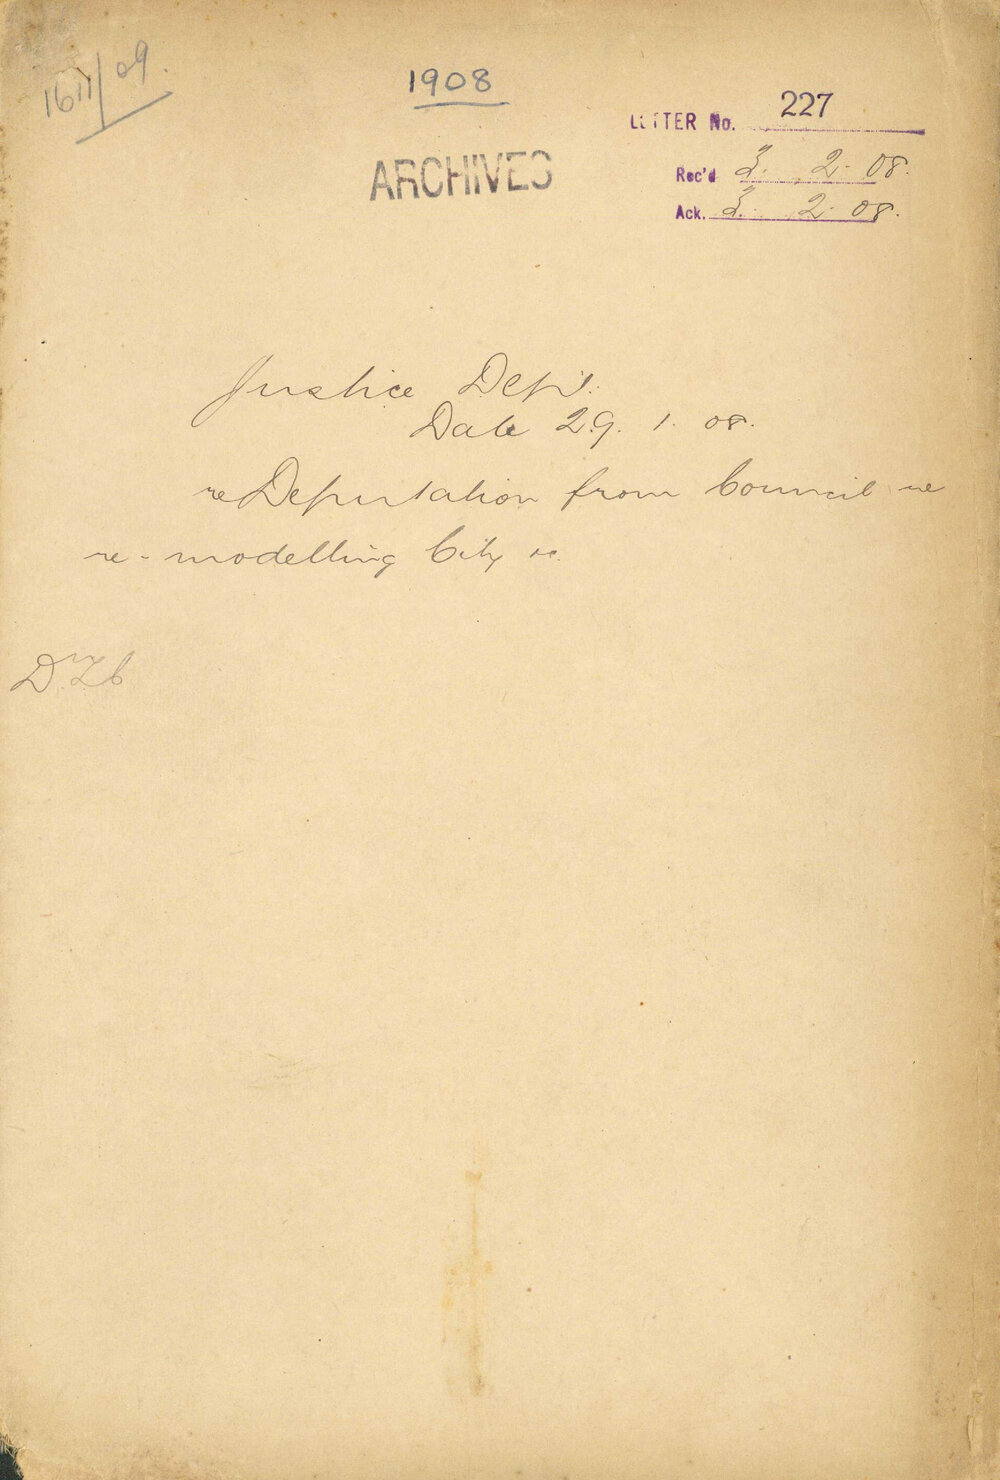 1611/09.
1908
LETTER No. 227
ARCHIVES
Rec'd 3. 2. 08.
Ack. 3. 2. 08.
Justice Dept.
Date 29. 1. 08.
re Deputation from Council re
re-modelling City &c.